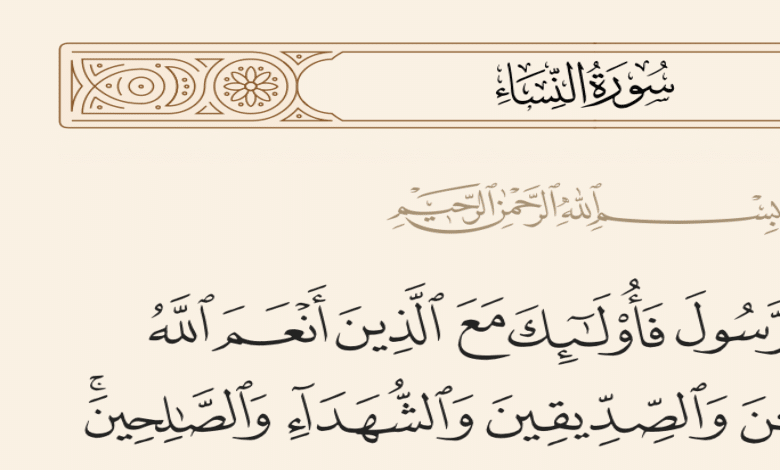 سُورَةُ النِّسَاءِ
بِسْمِ ٱللَّهِ ٱلرَّحْمَٰنِ ٱلرَّحِيمِ
رَّسُولَ فَأُو۟لَـٰٓئِكَ مَعَ ٱلَّذِينَ أَنْعَمَ ٱللَّهُ
نَ وَٱلصِّدِّيقِينَ وَٱلشُّهَدَآءِ وَٱلصَّـٰلِحِينَ ۚ